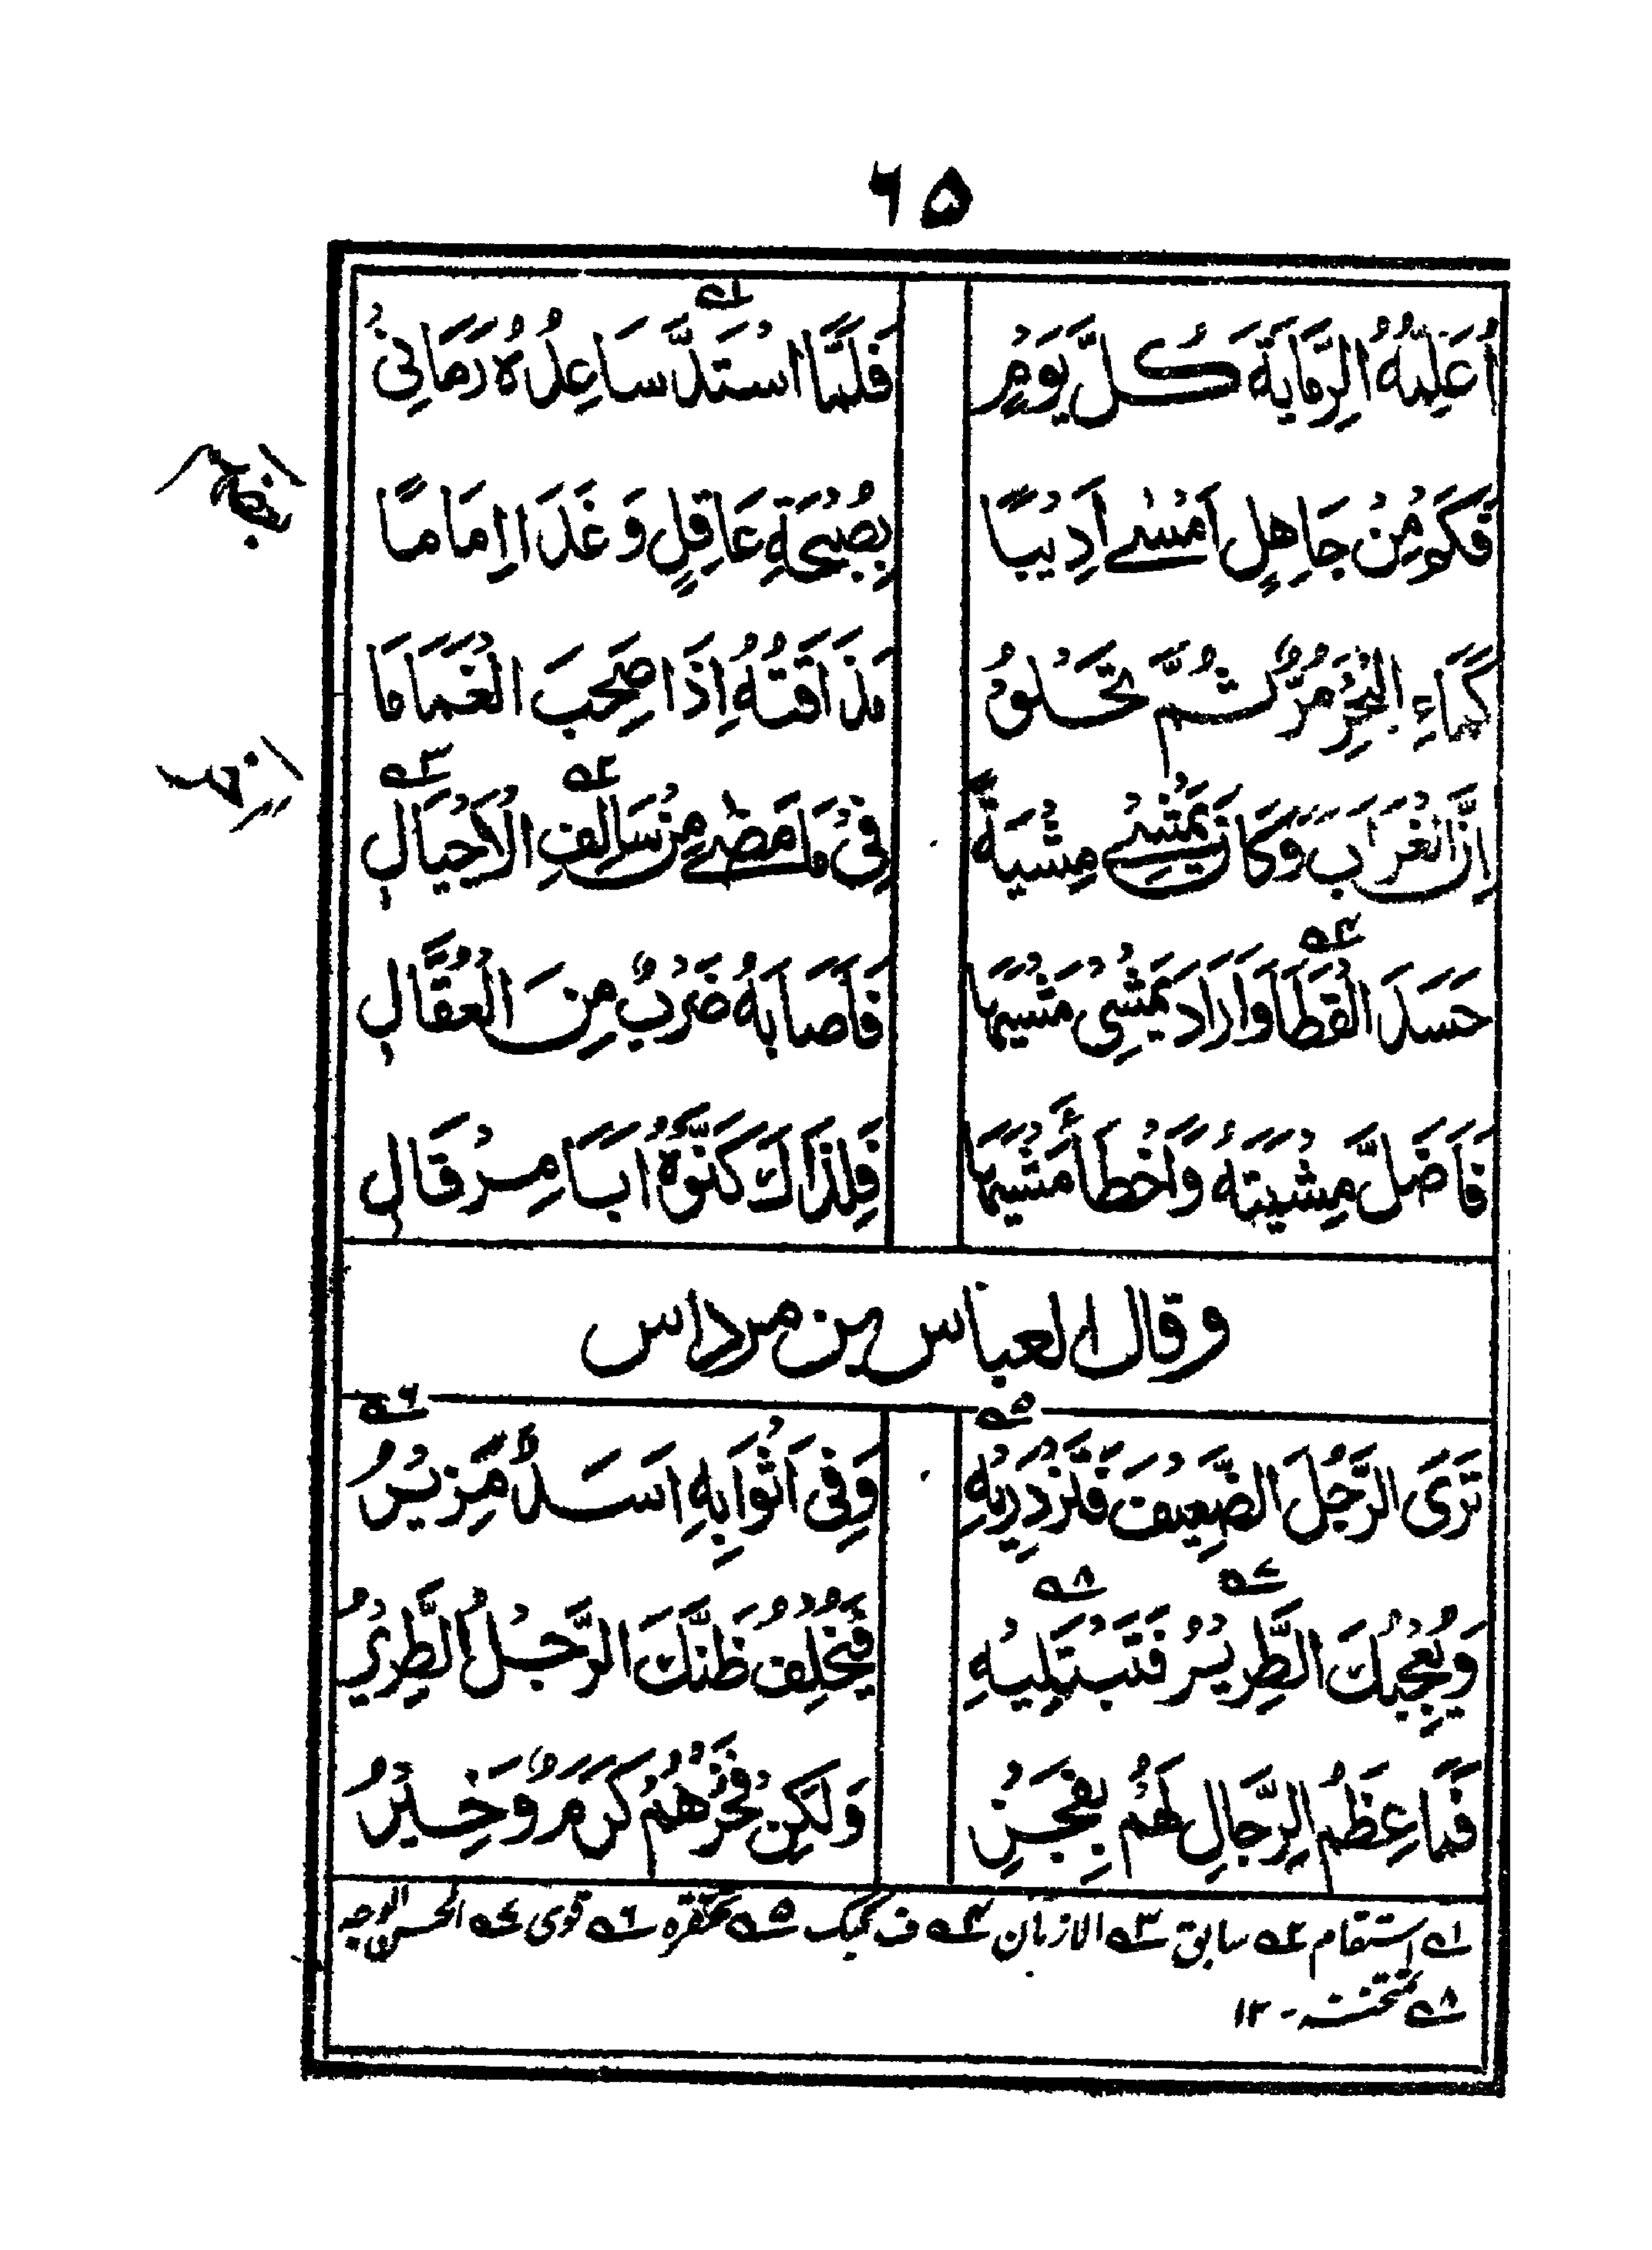 ٦٥
اُعَلِّمُهُ الرِّمَايَةَ كُلَّ يَوْمٍ فَلَمَّا اسْتَدَّ سَاعِدُهُ رَمَانِيْ
فَكَمْ مِنْ جَاهِلٍ اَمْسٰے اَدِيْبًا بِصُحْبَةِ عَاقِلٍ وَغَدَا اِمَامًا
كَمَاءِ الْبَحْرِ مُرٌّ ثُمَّ تَحْلُوْ مَذَاقَتُهُ اِذَا صَحِبَ الْغَمَامَا
اِنَّ الْغُرَابَ وَكَانَ يَمْشِيْ مِشْيَةً فِيْ مَا مَضٰے مِنْ سَالِفِ الْاَجْيَالِ
حَسَدَ الْقَطَا وَاَرَادَ يَمْشِيْ مَشْيَهَا فَاَصَابَهُ ضَرْبٌ مِنَ الْعُقَّالِ
فَاَضَلَّ مِشْيَتَهُ وَاَخْطَأَ مَشْيَهَا فَلِذَاكَ كَنَّوْهُ اَبَا مِرْقَالِ
وقال العباس بن مرداس
تَرَى الرَّجُلَ الضَّعِيْفَ فَتَزْدَرِيْهِ وَفِيْ اَثْوَابِهِ اَسَدٌ مَّزِيْرُ
وَيُعْجِبُكَ الطَّرِيْرُ فَتَبْتَلِيْهِ فَيُخْلِفُ ظَنَّكَ الرَّجُلُ الطَّرِيْرُ
فَمَا عِظَمُ الرِّجَالِ لَهُمْ بِفَخْرٍ وَلٰكِنْ فَخْرُهُمْ كَرَمٌ وَّخِيْرُ
١ استقام ٢ سابق ٣ الازمان ٤ ف کبک ٥ تحقره ٦ قوى ٧ الحسن الوجه
٨ تمتحنه - ١٢